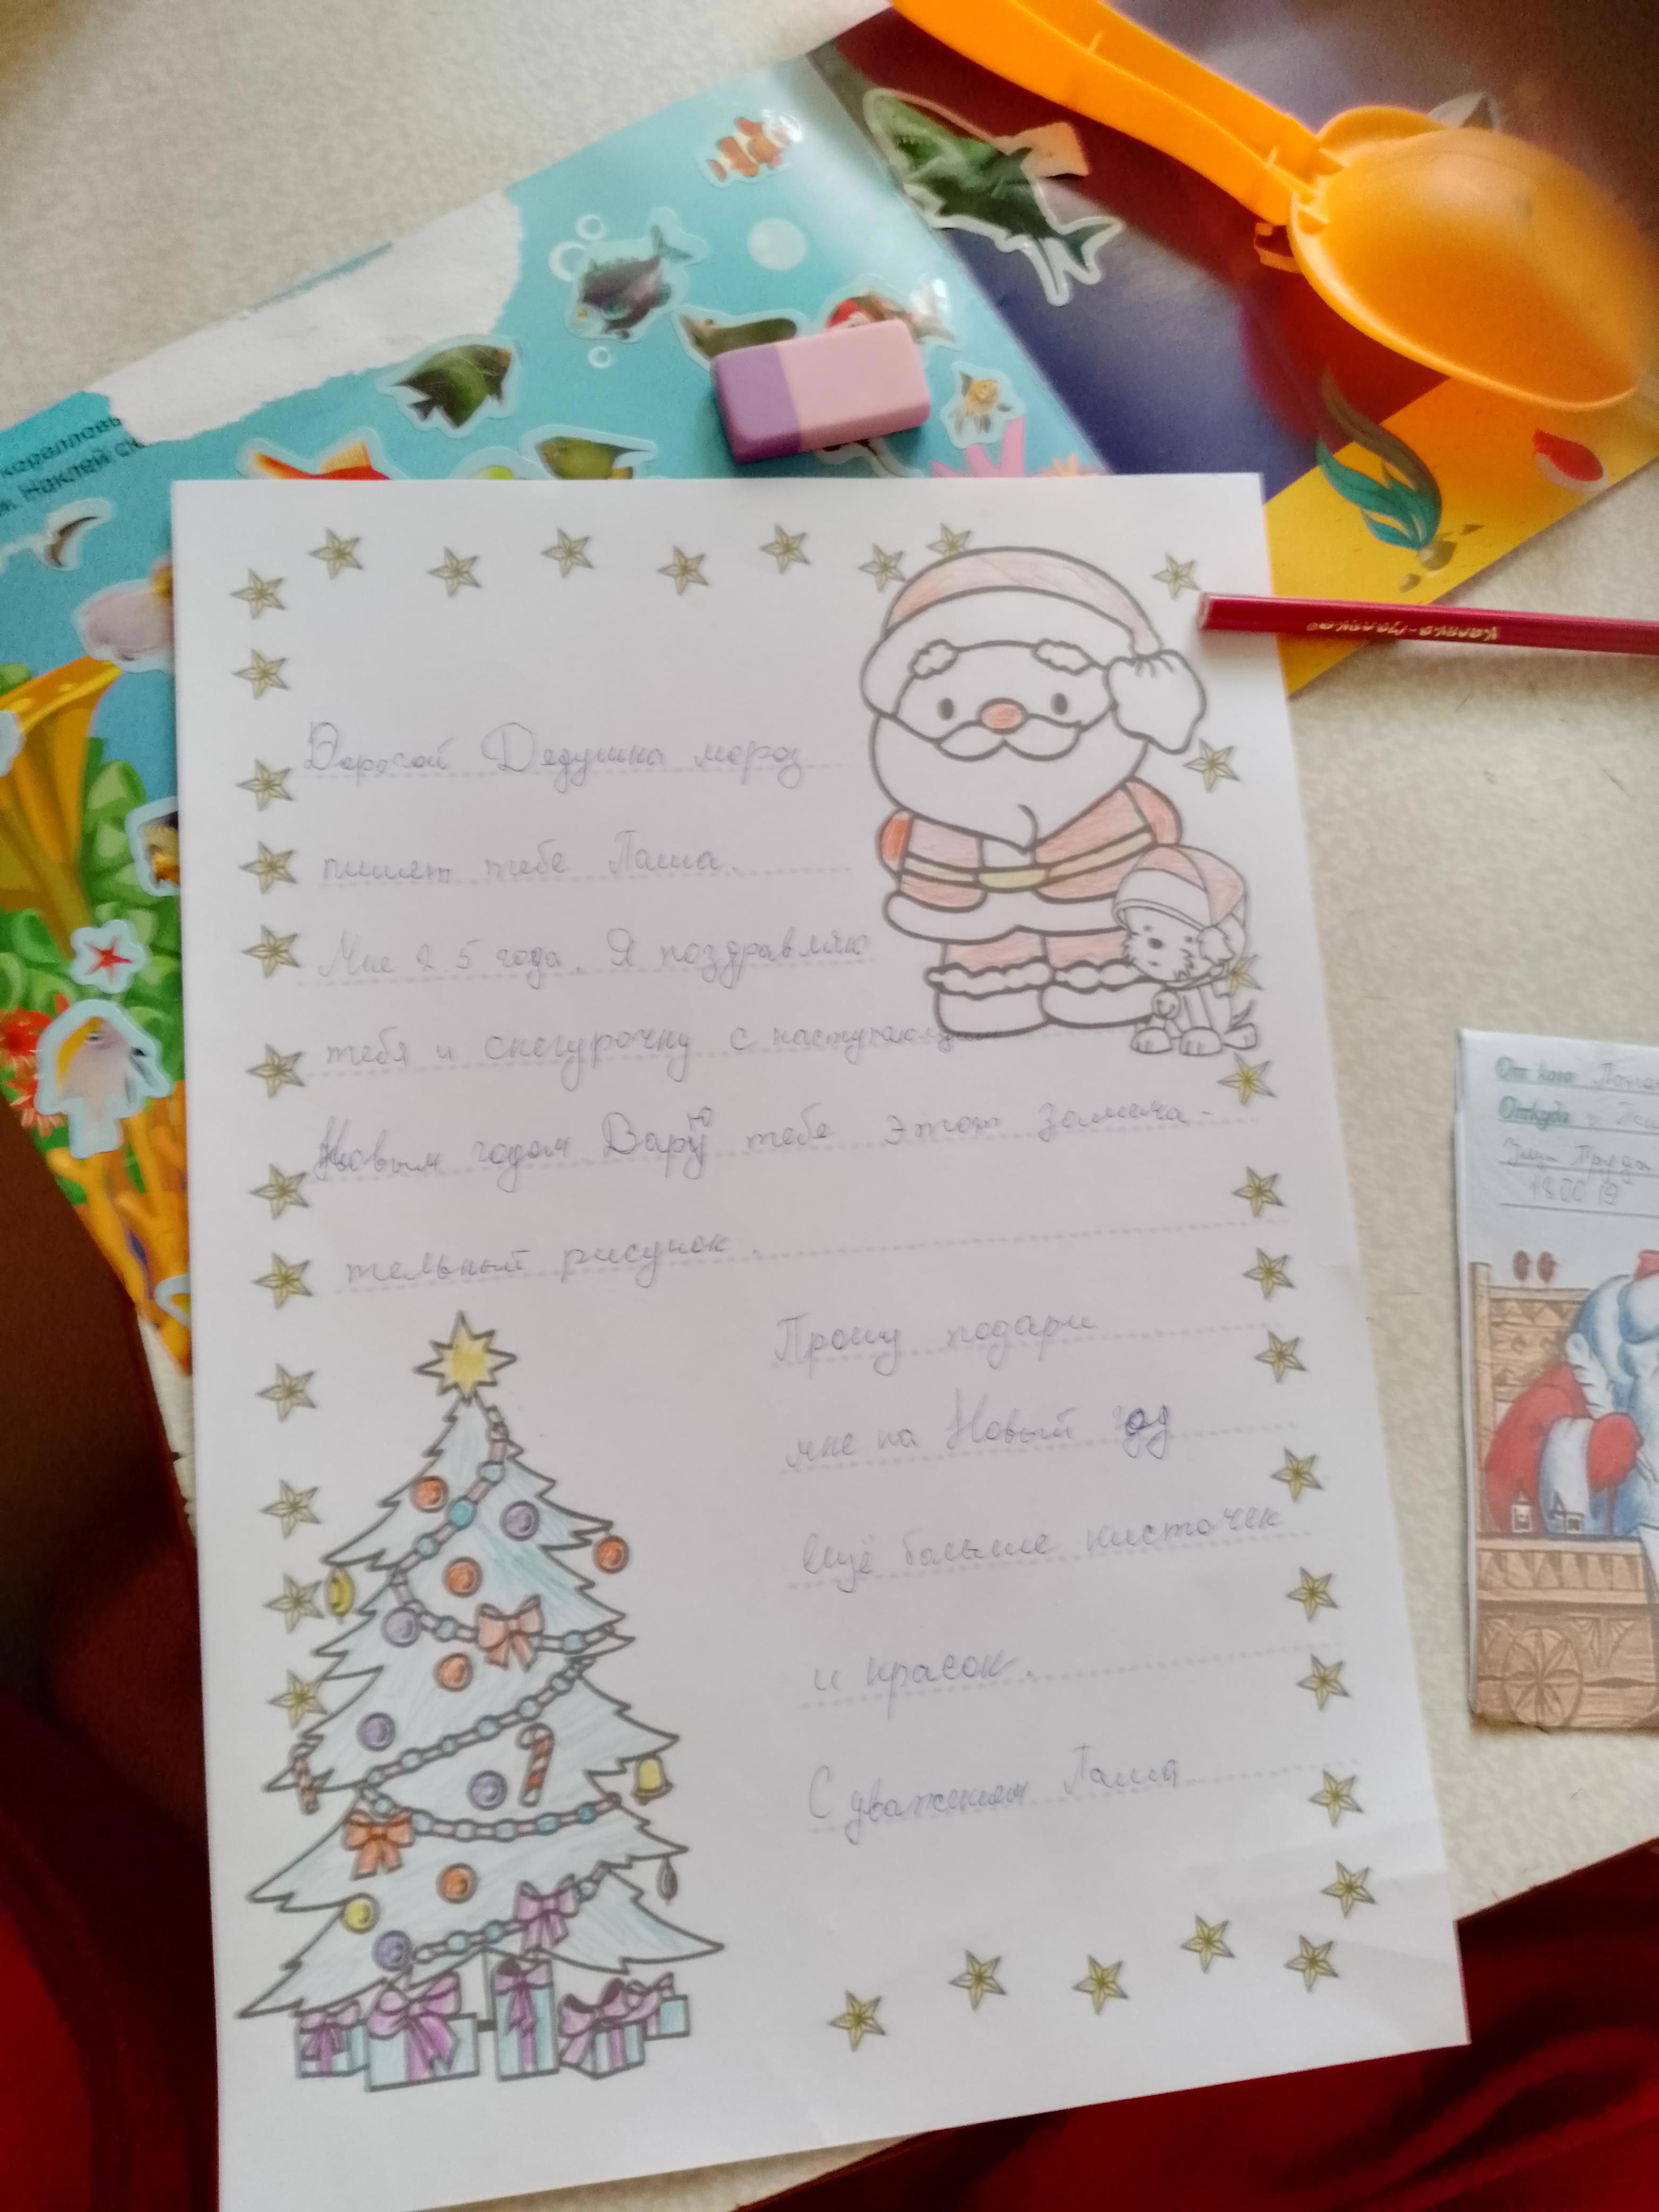 коралловы
Наклей ск
Каляка-Маляка®
Дорогой Дедушка мороз
пишет тебе Паша.
Мне 2 5 года. Я поздравляю
тебя и снегурочку с наступающим
Новым годом Дарю тебе этот замеча-
тельный рисунок.
Прошу подари
мне на Новый год
ещё больше кисточек
и красок.
С уважением Паша
От кого
Откуда
Труда